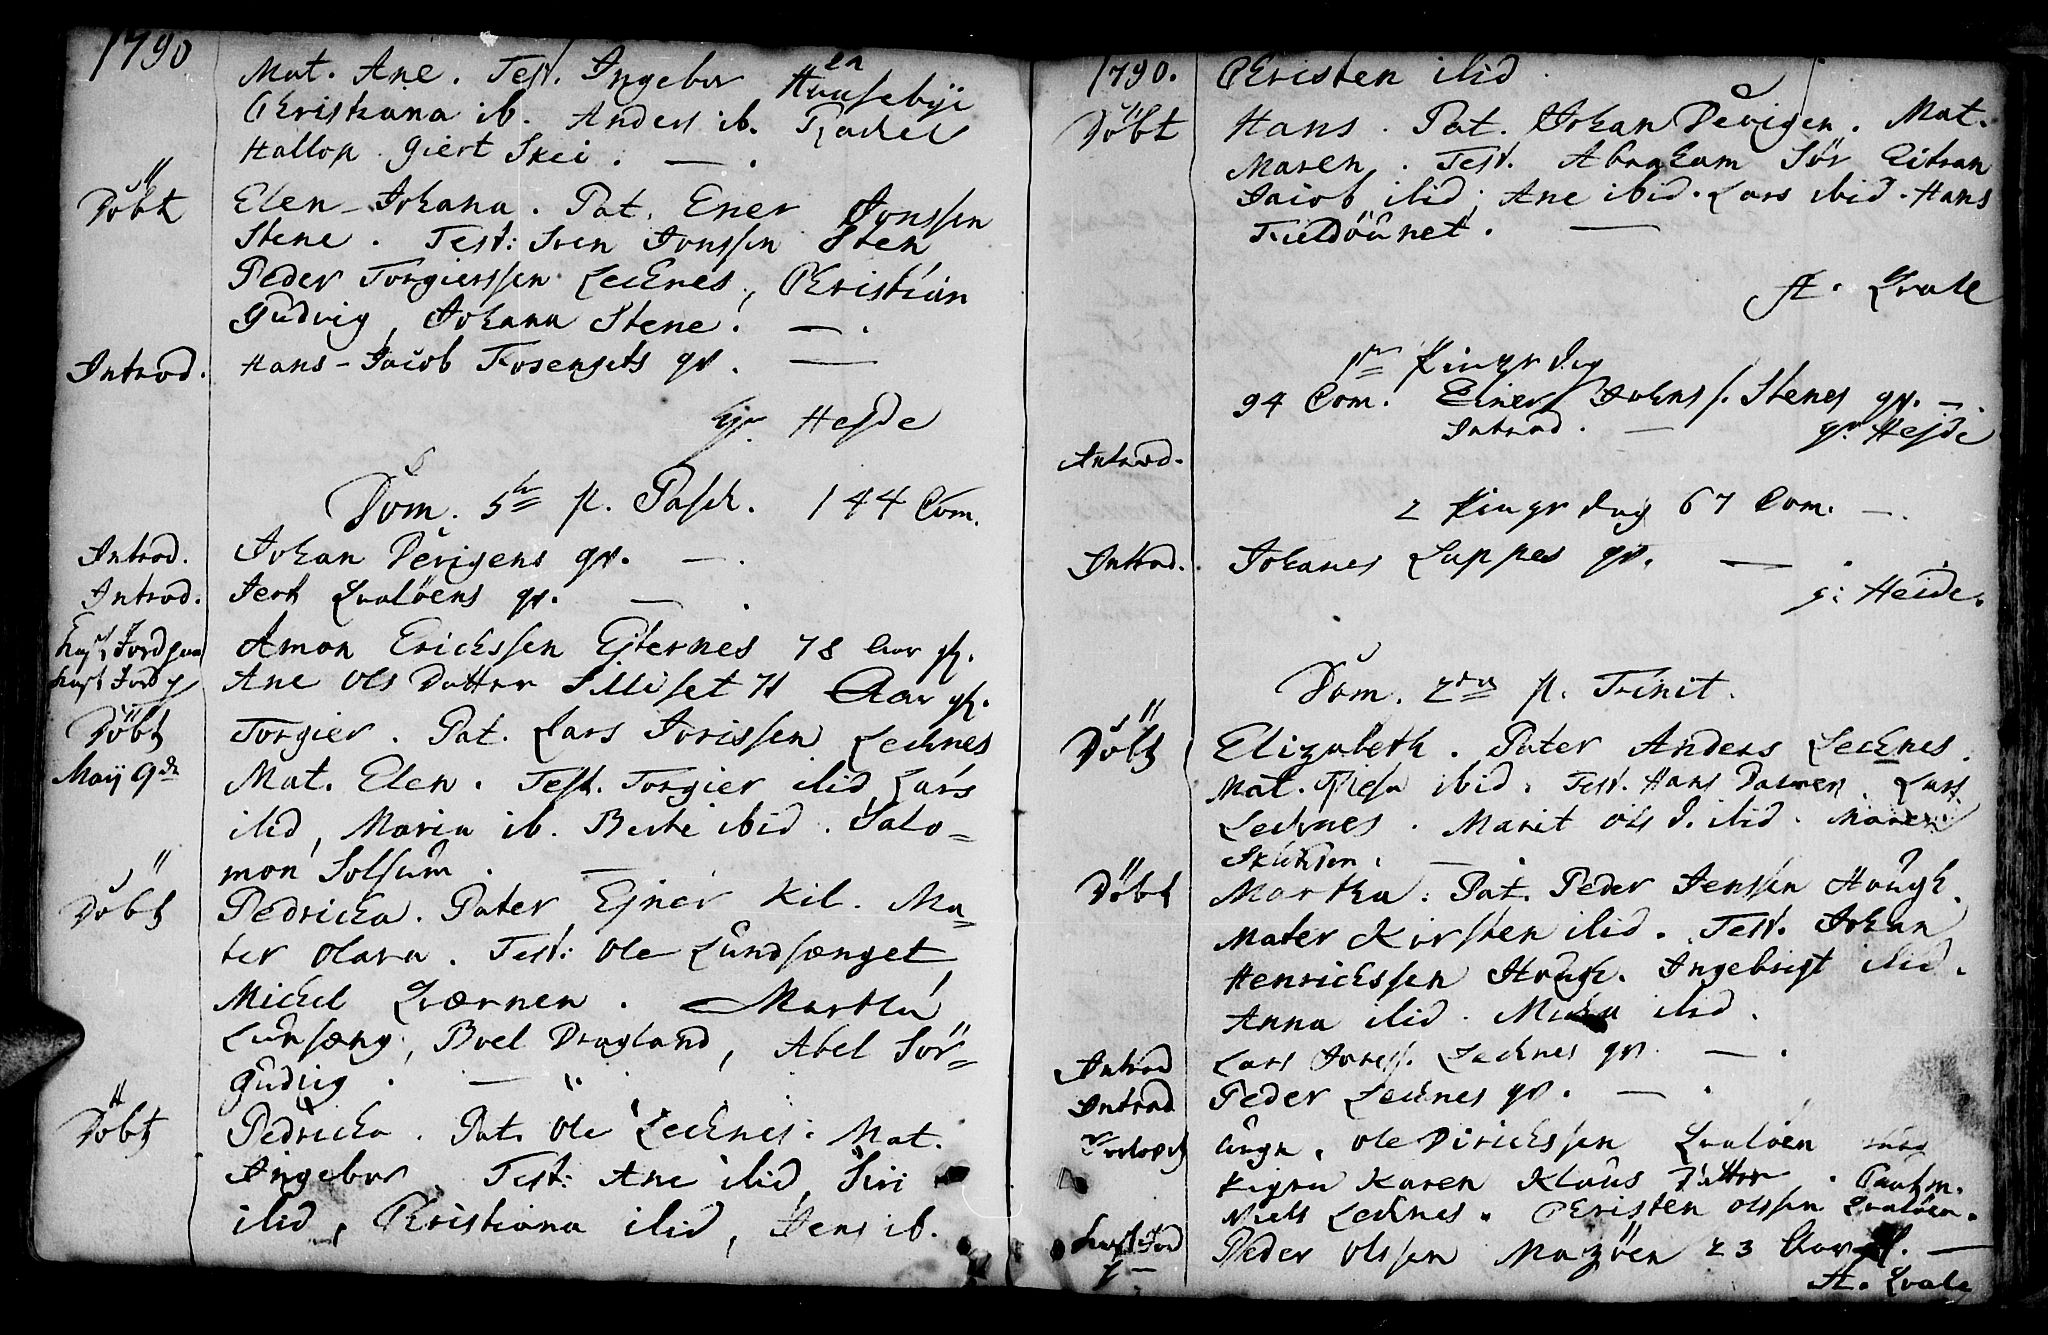 1790
Mat. Ane. Test. Ingebor Huusebÿe
Christiana ib. Anders ib. Rachel
Hallop. Giert Skei. —
Döbt Elen-Johana. Pat. Ener Jonssen
Stene. Test: Sven Jonssen Sten
Peder Torgierssen Lecknes, Christian
Gudvig, Johana Stene. — .
Introd. Hans-Jacob Fosengets qv. —
Hejde
Dom. 5te p. Pasch. 144 Com.
Introd. Johan Devigens qv. — .
Introd. Jert Qvalöens qv. — .
Kast Jord paa Amon Erickssen Ejternes 78 Aar gl.
Kast Jord p Ane Ols Datter Silliset 71 Aar gl.
Döbt Torgier. Pat. Lars Jorissen Lecknes
Maÿ 9de Mat. Elen. Test. Torgier ibid, Lars
ibid, Maria ib. Berte ibid. Salo=
mon Solsum. —
Döbt Pedricka. Pater Ejner Kil. Ma=
ter Olava. Test: Ole Lundsænget
Mickel Qværnen. Martha
Lunsæng, Boel Dragland, Abel Sör=
Gudvig. —
Döbt Pedricka. Pat. Ole Lecknes. Mat.
Ingebor. Test: Ane ibid, Siri
ibid, Christiana ibid, Jens ib.
1790. Christen ibid
Döbt Hans. Pat. Johan Devigen. Mat.
Maren. Test. Abraham Sör Eitran
Jacob ibid; Ane ibid. Lars ibid. Hans
Fieldöunet. —
A. Qvale
1ste Pingse dag
94 Com. Einer Johns s. Stenes qv. —.
Introd. — Hejde
Introd.
2 Pingse dag 67 Com. —.
Introd. Johanes Lappes qv. — .
g: Heide.
Dom. 2da p. Trinit.
Döbt Elizabeth. Pater Anders Lecknes.
Mat. ibid. Test. Hans Dalmen. Lars
Lecknes. Marit Ols D. ibid. Maren
—
Döbt Martha: Pat. Peder Jenssen Haugh.
Mater Kirsten ibid. Test. Johan
Henrickssen Haugh. Ingebrigt ibid.
Anna ibid. ibid.
Introd Lars Joress. Lecknes qv. — .
Introd Peder Lecknes qv. — .
Trolovet Ungk. Ole Dirickssen Qvalöen
Pigen Karen Klaus Datter.
Niels Lecknes. Christen Olssen Qvalöen.
Kast Jord Peder Olssen Mazöen 23 Aar gl. —
p —
A. Qvale